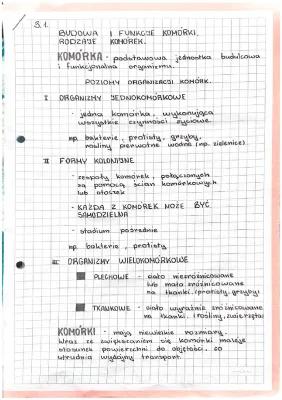 S.1.
BUDOWA I FUNKCJE KOMÓRKI.
RODZAJE KOMÓREK.
KOMÓRKA - podstawowa jednostka budulcowa
i funkcjonalna organizmu.
POZIOMY ORGANIZACJI KOMÓRK.
I ORGANIZMY JEDNOKOMÓRKOWE
- jedna komórka, wykonująca
wszystkie czynności życiowe.
np. bakterie, protisty, grzyby,
rośliny pierwotne wodne (np. zielenice)
II FORMY KOLONIJNE
- zespoły komórek, połączonych
za pomocą ścian komórkowych
lub otoczek
- KAŻDA Z KOMÓREK MOŻE BYĆ
SAMODZIELNA
- stadium pośrednie
np. bakterie, protisty
III ORGANIZMY WIELOKOMÓRKOWE
PLECHOWE - ciało niezróżnicowane
lub mało zróżnicowane
na tkanki. (protisty, grzyby)
TKANKOWE - ciało wyraźnie zróżnicowane
na tkanki. (rośliny, zwierzęta)
KOMÓRKI - mają niewielkie rozmiary.
Wraz ze zwiększaniem się komórki maleje
stosunek powierzchni do objętości, co
utrudnia wydajny transport.